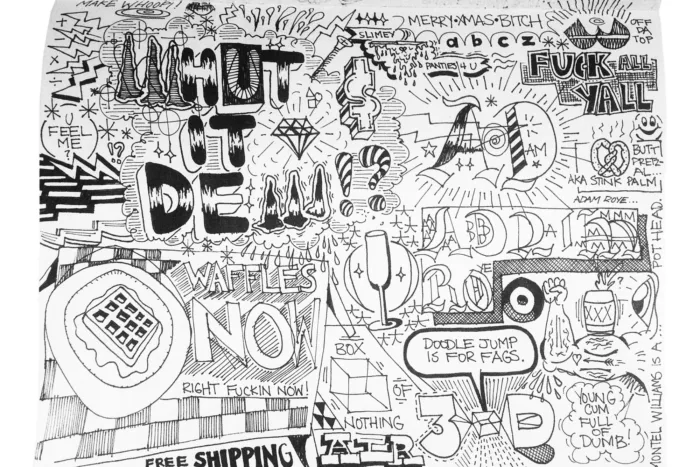 MAKE WHOOPI!
MERRY·XMAS·BITCH
SLIMEY
a b c z
PANTIES 4 U
OFF
DA
TOP
FUCK ALL
YALL
WHUT
IT
DEW
!?
U
FEEL
ME
?
!?
AD
AM
BUTT
PRETZ-
AL...
AKA STINK PALM
ADAM ROYE...
ADDAM
ROYE
WAFFLES
NOW
RIGHT FUCKIN NOW!
FREE SHIPPING
BOX
OF
NOTHING
AIR
DOODLE JUMP
IS FOR FAGS.
3-D
YOUNG
CUM
FULL
OF
DUMB!
MONTEL WILLIAMS IS A... POT HEAD